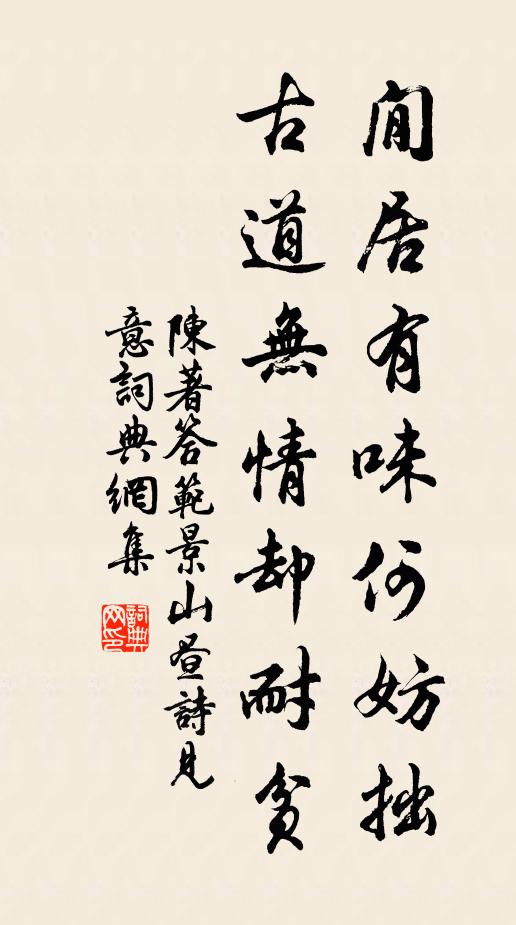 閒居有味何妨拙
古道無情却耐貧
陳著答範景山晝詩見
意詞典網集
詞典网印